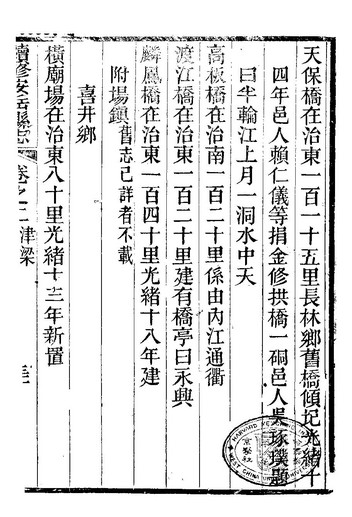 天保橋在治東一百一十五里長林鄉舊橋傾圮光緒十
四年邑人賴仁儀等捐金修拱橋一硐邑人吳琢璞題
曰半輪江上月一洞水中天
高板橋在治南一百二十里係由內江通衢
渡江橋在治東一百二十里建有橋亭曰永興
麟鳳橋在治東一百四十里光緒十八年建
附場鎮舊志已詳者不載
喜井鄉
橫廟場在治東八十里光緒十三年新置
續修安岳縣志 卷之二 津梁